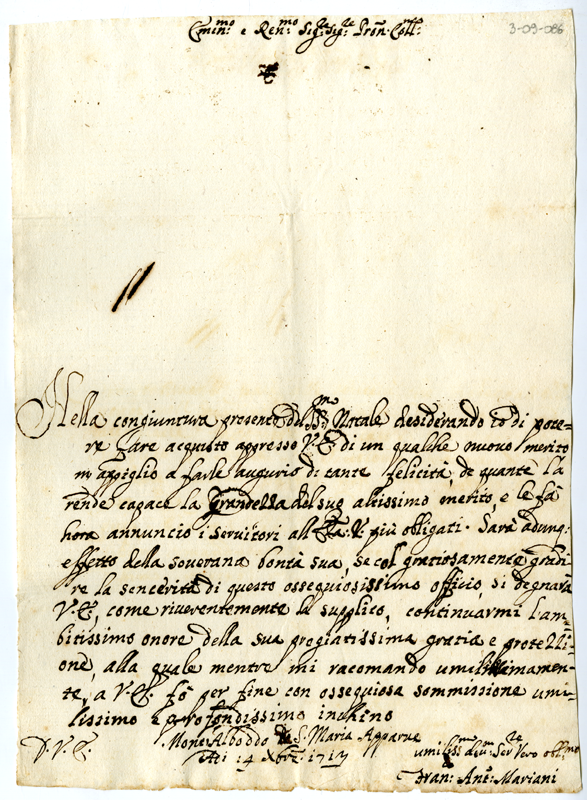 Emin:mo e Ren:mo Sig:re Sig:re Pron: Coll:mo
3-09-086
Nella congiuntura presente del SS:mo Natale desiderando Io di pote=
re fare acquisto appresso V.E. di un qualche nuovo merito
m'appiglio a farle augurio di tante felicità, de quante la
rende capace la Grandezza del suo altissimo merito, e le fà
hora annuncio i servitori all' più obligati. Sarà adunq:
effetto della sovrana bontà sua, se col gratiosamente gradi=
re la sencerità di questo ossequiosissimo officio, si degnarà
V.E., come riverentemente la supplico, continuarmi l'am=
bitissimo onore della sua pregiatissima gratia e protettio=
one, alla quale mentre mi racomando umilissimamen=
te, a V.E. fò per fine con ossequiosa sommissione umi=
lissimo e profondissimo inchino
D.V.E.
Mone Alboddo S. Maria Apparve
Adi :4 Xbre: 1717
umiliss:mo divo:mo Ser:re Vero obl:mo
Fran: Ant: Mariani